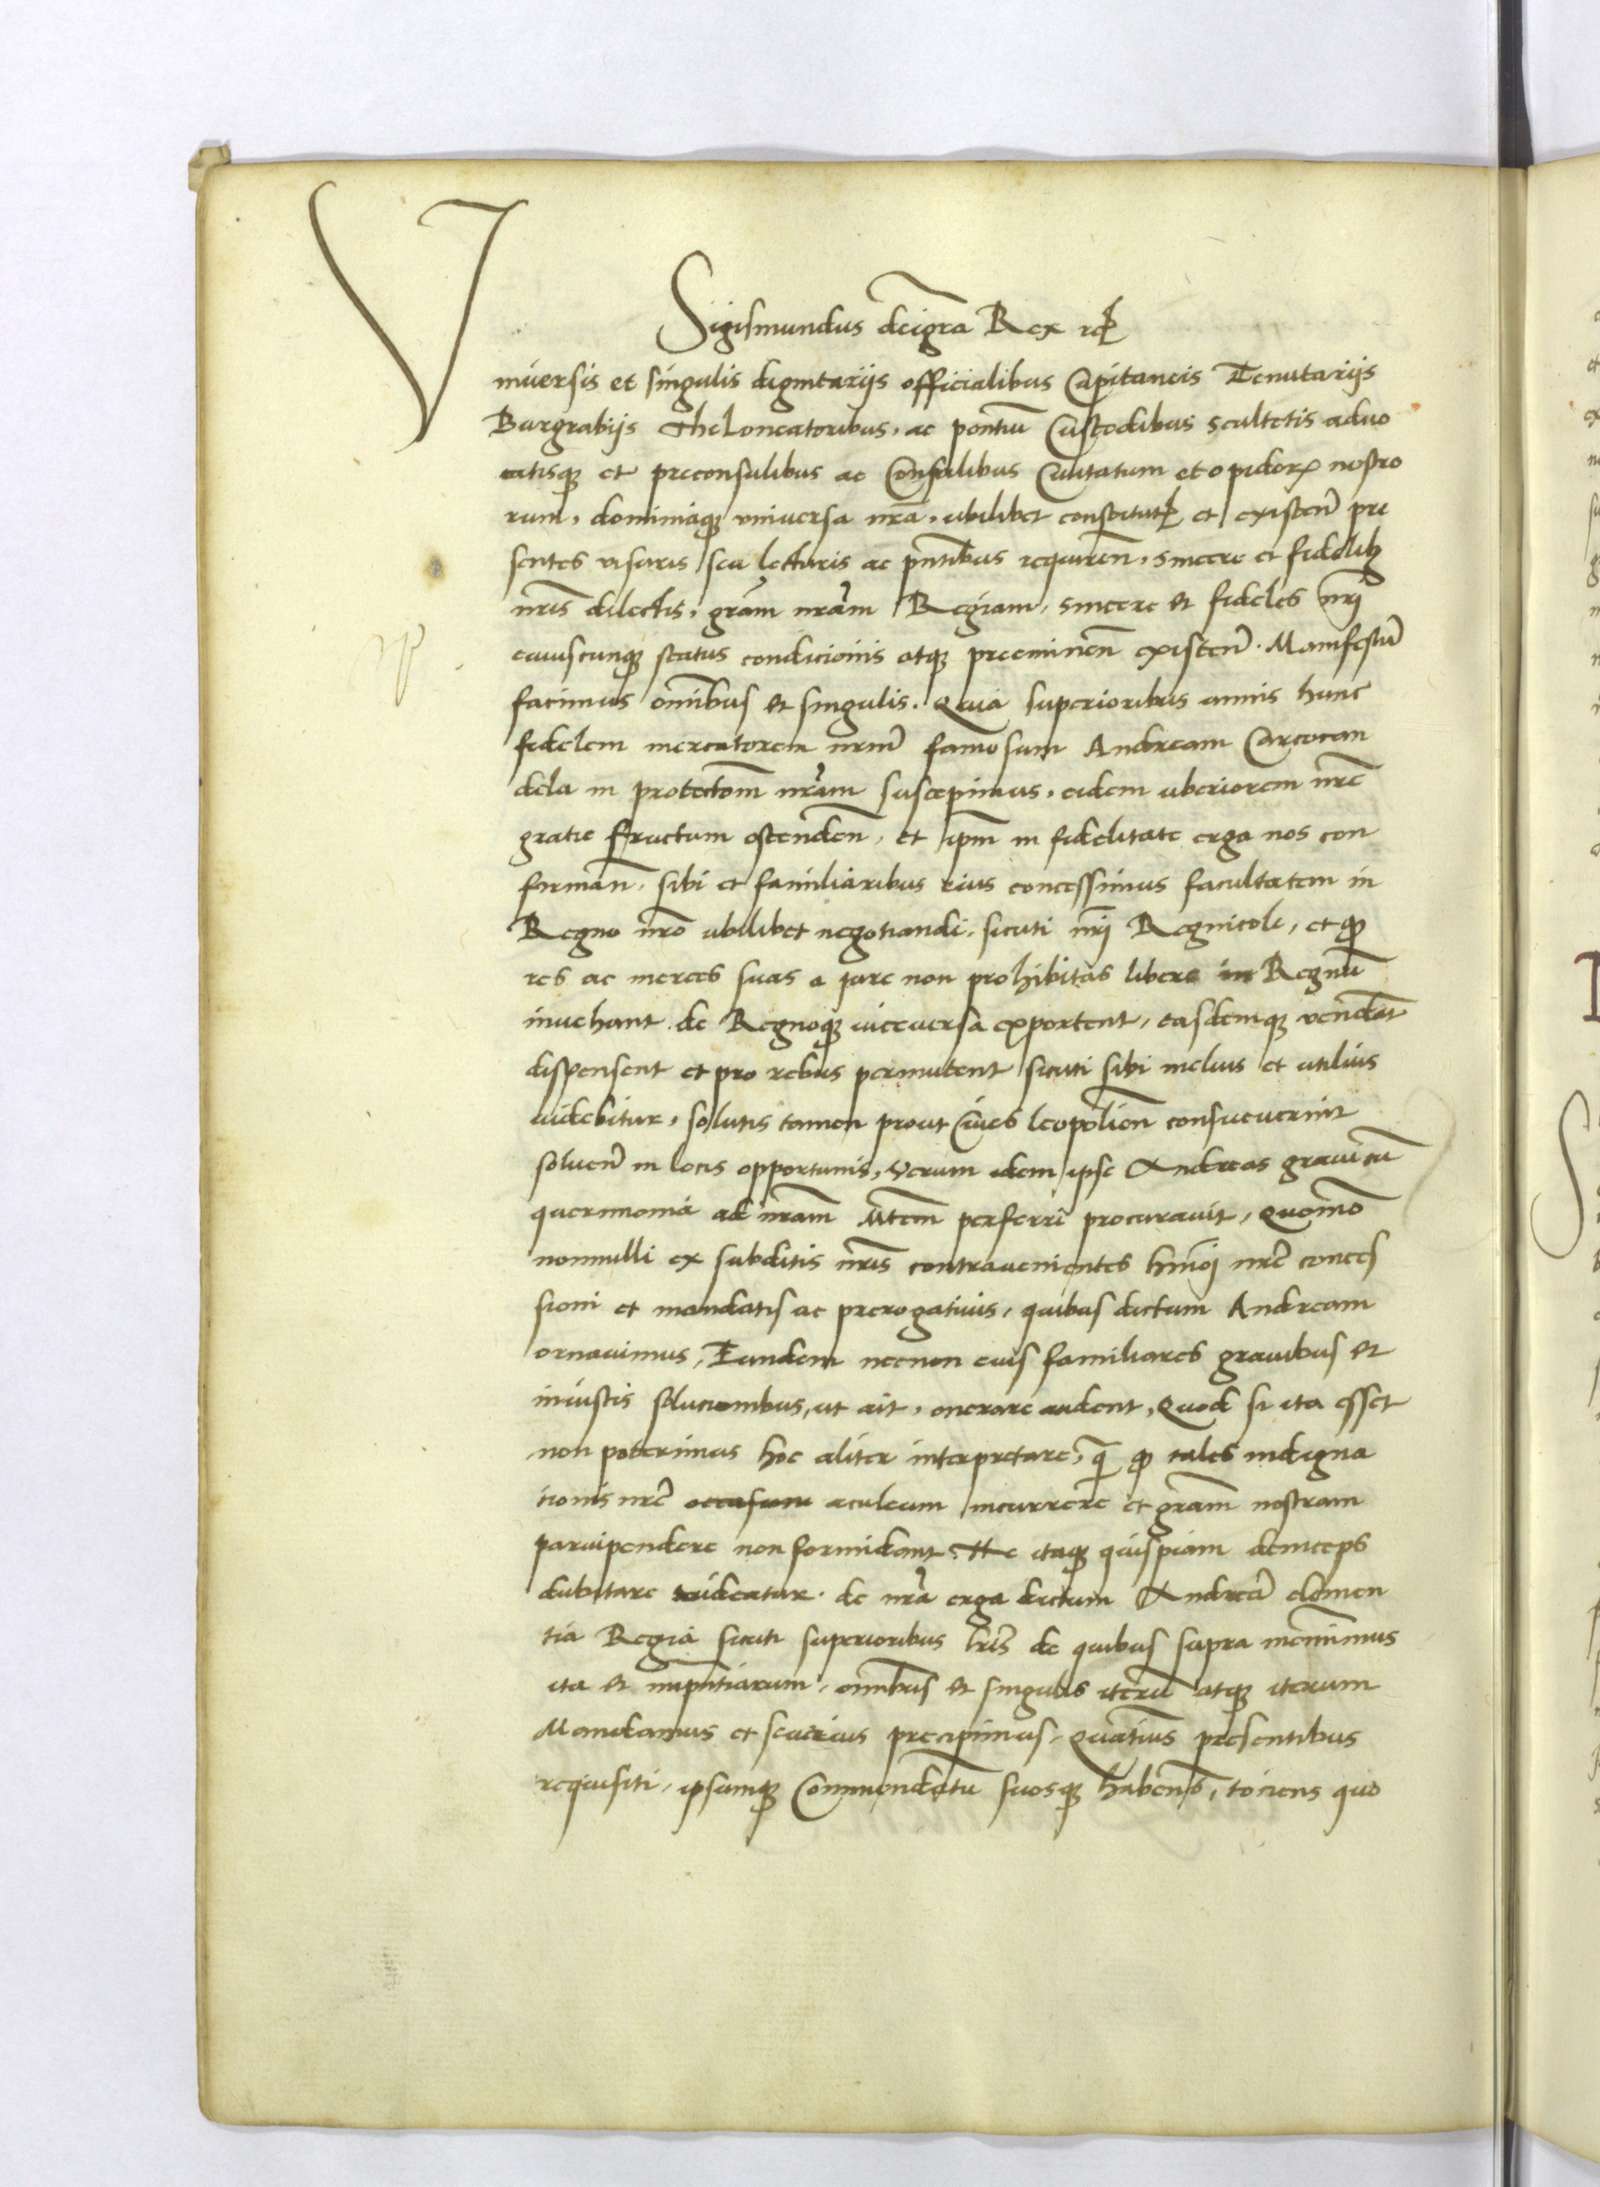 Sigismundus deigra Rex etc
Vniuersis et singulis dignitariis officialibus Capitaneis Tenutariis
Burgrabiis Theloneatoribus, ac pontiu Custodibus scultetis aduo
catisque et preconsulibus ac Consulibus Ciuitatum et opidorum nostro
rum, dominiaque vniuersa nra, ubilibet constitutis et existen pre
sentes visuris seu lecturis ac pntibus requiren, sincere et fidelibus
nris dilectis, gram nram Regiam, sincere et fideles nri
cuiuscunque status condicionis atque preeminen existen. Manifestu
facimus omibus et singulis. Quia superioribus annis hunc
fidelem mercatorem nrm famosum Andream Carcocan
dela in protectom nram suscepimus, eidem uberiorem nre
gratie fructum ostenden, et ipm in fidelitate erga nos con
forman, sibi et familiaribus eius concessimus facultatem in
Regno nro ubilibet negotiandi, sicuti nri Regnicole, et quod
res ac merces suas a iure non prohibitas libere in Regnu
inuehant de Regnoque viceuersa exportent, easdemque vendat
dispensent et pro rebus permutent sicuti sibi melius et utilius
videbitur, solutis tamen prout Ciues leopolien consueuerint
soluen in locis opportunis, Verum idem ipse Andreas graui cu
querimonia ad nram Mtem perferri procurauit, Quomo
nonnulli ex subditis nris contrauenientes hmoi nre conces
sioni et mandatis ac prerogatiuis, quibus dictum Andream
ornauimus, Eundem necnon eius familiares grauibus et
iniustis solucionibus, ut ait, onerare audent, Quod si ita esset
non poterimus hoc aliter interpretare, qm quod tales indigna
tionis nre occasum aculeum incurrere et gram nostram
paruipendere non formidant, Ne itaque quispiam deinceps
dubitare videatur de nra erga dictum Andrea clemen
tia Regia sicuti superioribus lris de quibus supra meminimus
ita et inpntiarum, omibus et singulis iteru atque iterum
Mandamus et seuerius precipimus, Quatinus presentibus
requisiti, ipsumque Commendatu suosque habendo, totiens quo